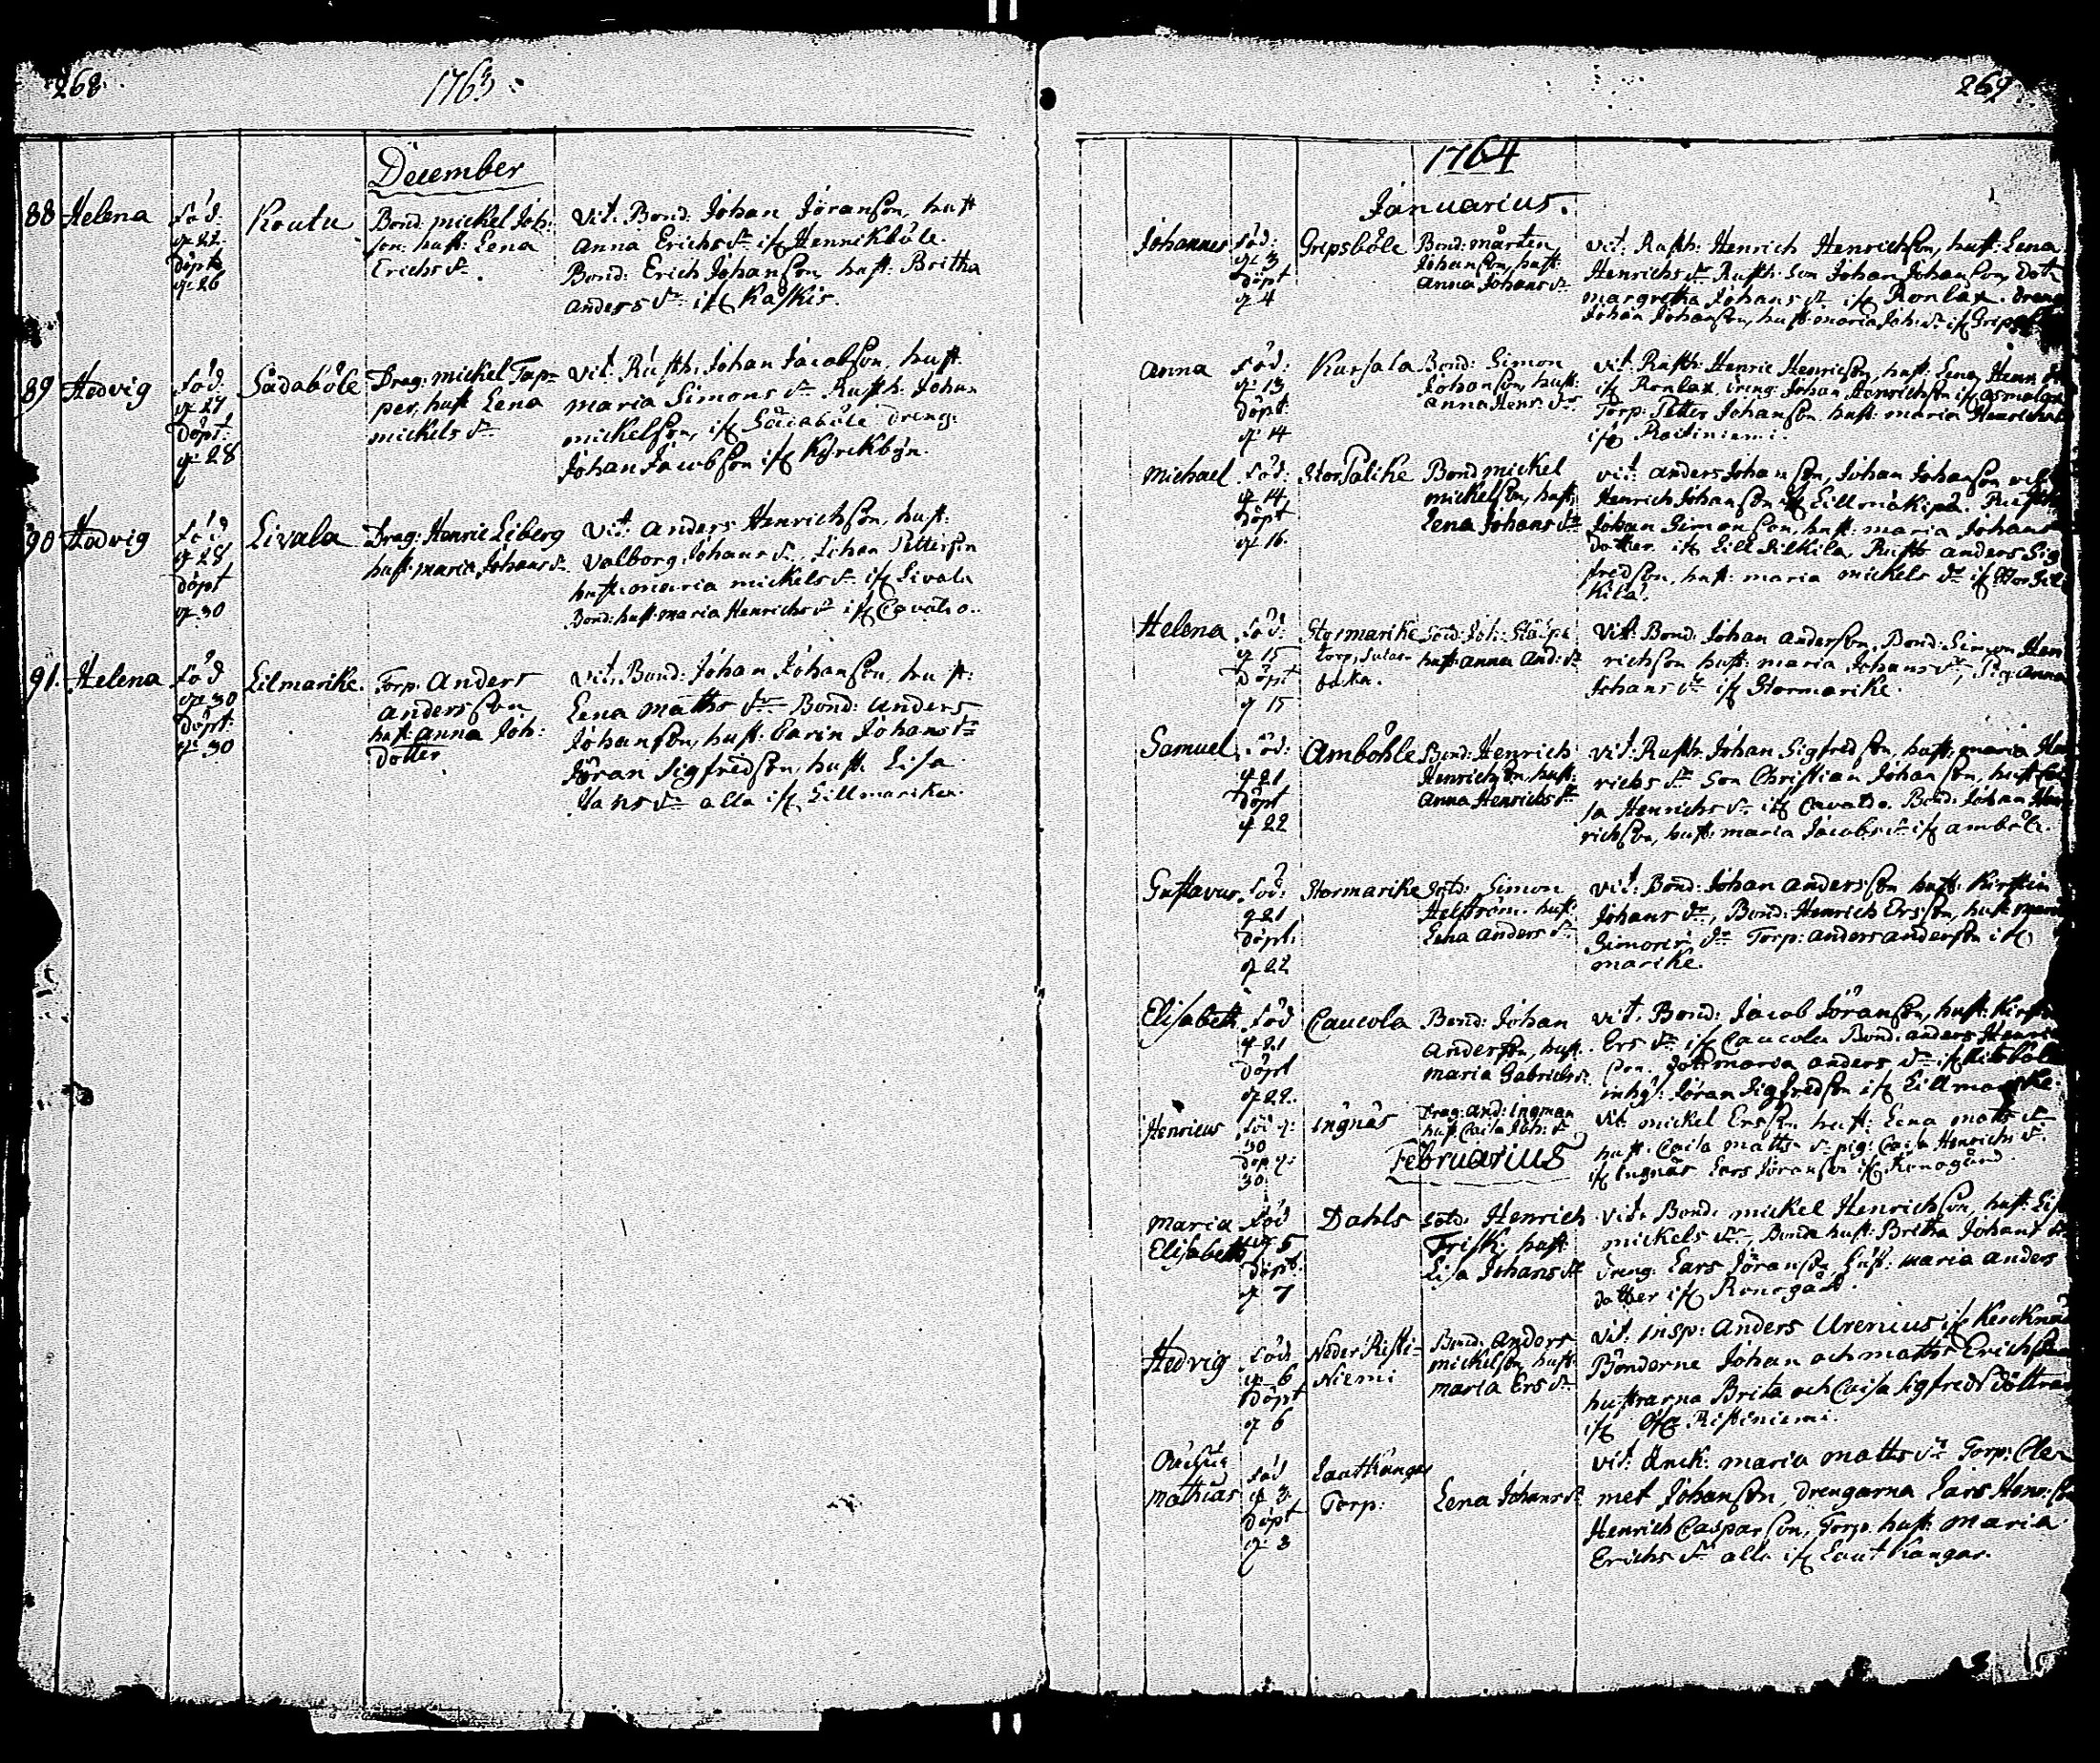 268.
1763.
December
88 Helena
Föd:
d. 22.
döpt
d. 26
Koutu
Bond: mickel Joh:
son: hust: Lena
Erichs dr.
Vit. Bond: Johan Jöranson, hust
Anna Erichs dr. if Henrikböle.
Bond: Erich Johanson, hust: Britha
anders dr. if Kaskis.
89 Hedvig
Föd:
d. 27
döpt:
d. 28
Sådaböle
Drag: mickel Tap-
per, hust Lena
mickels dr.
Vit. Rusth: Johan Jacobson, hust
maria Simons dr. Rusth: Johan
mickelson, if Sådaböle dreng:
Johan Jacobson if Kyrckbyn.
90 Hedvig
Föd
d. 28
döpt
d. 30
Livala
Drag: Henric Liberg
hust: maria Johans dr.
Vit: Anders Henrichson, hust:
Valborg Johans dr., Johan Petterson
hust: maria mickels dr. if Livala
Bond: hust: maria Henrichs dr. if Cavato.
91. Helena
Föd
d. 30
döpt:
d. 30
Lilmarike.
Torp: Anders
andersson
hust: anna Joh:
dotter
Vit. Bond: Johan Johanson, hust:
Lena Matts dr. Bond: anders
Johanson, hust: Carin Johans dr.
Jöran Sigfredson, hust. Lisa
Hans dr. alla if Lillmarike.
269.
1764
Januarius.
Johannes
Föd:
d. 3
döpt
d. 4
Gripsböle
Bond: mårten
Johanson, hust:
Anna Johans dr.
Vit: Rusth: Henrich Henrichson, hust: Lena
Henrichs dr. Rusth: son Johan Johanson, dot
margretha Johans dr. if Ronlax. dreng
Johan Johanson, hust: maria Joh: dr. if
Anna
Föd:
d. 13
döpt:
d. 14
Kursala
Bond: Simon
Johanson, hust:
anna Henr: dr.
Vit: Rusth: Henric Henricson, hust: Lena Henr
if Ronlax, dreng: Johan Henrichson if
Torp: Petter Johanson hust: maria
if Ristiniemi.
Michael
Föd:
d. 14
döpt
d. 16.
Bond mickel
mickelson, hust:
Lena Johans dr.
Vit: Anders Johanson, Johan Johanson
Henrich Johanson if
Johan Simonson, hust: maria Johans
dotter if Lill Silkila, Rusth anders Sig
fredson, hust: maria mickels dr. if Stor Sil
kila.
Helena
Föd:
d. 15
döpt
d. 15
Stormarike
torp,
backa.
Sold: Joh:
hust: anna And: dr.
Vit: Bond: Johan anderson, Bond: Simon Hen
richson hust: maria Johans dr., Pig: Anna
Johans dr. if Stormarike.
Samuel
Föd:
d. 21
döpt
d. 22
Amböhle
Bond: Henrich
Henrichson, hust:
Anna Henrichs dr.
Vit: Rusth: Johan Sigfredson, hust: maria Hen
richs dr. son Christian Johanson, hust Cai
sa Henrichs dr. if Cavato. Bond: Johan Hen
richson, hust: maria Jacobs dr. if amböle.
Gustavus
Föd:
d. 21
döpt.
d. 22
Stormarike
Sold: Simon
Helström. hust:
Lena Anders dr.
Vit: Bond: Johan andersson hust: Kirstin
Johans dr., Bond: Henrich Ersson, hust: maria
Simons dr. Torp: anders anderson if
marike.
Elisabeth
Föd
d. 21
döpt
d. 22.
Caucola
Bond: Johan
Anderson, hust:
maria Gabriels dr.
Vit. Bond: Jacob Jöranson, hust: Kirstin
Ers dr. if Caucola Bond: anders Henrich
son. dott: maria anders dr. if
inhy: Jöran Sigfredson if Lillmarike.
Henricus
Föd d.
30
döp d.
30
Ingnäs
Drag: And: Ingman
hust Caisa Joh: dr.
Vit. mickel Ersson hust: Lena matts dr.
hust: Caisa matts dr. pig: Caisa Henrichs dr.
if Ingnäs Lars Jöranson if Konogård.
Februarius
Maria
Elisabeth
Föd
d. 5
döpt.
d. 7
Dahls
Sold: Henrich
Frisk, hust
Lisa Johans dr.
Vit. Bond: mickel Henrichson, hust: Lisa
mickels dr., Bonde hust: Britha Johans dr.
dreng: Lars Jöranson, hust: maria anders
dotter if Konogård.
Hedvig
Föd
d. 6
döpt
d. 6
Neder Risti-
Niemi
Bond: Anders
mickelson, hust:
maria Ers dr.
Vit: Insp: Anders Urenius if
Bönderne Johan och matths Erichson
hustrarna Brita och Caisa Sigfreds döttrar
if Öfre Ristiniemi.
Oächta
Mathias
Föd
d. 3.
döpt
d. 8
Lautkangar
Torp:
Lena Johans dr.
Vit: Enck: maria matts dr. Torp: Cle
met Johanson, drengarna Lars Henr: son
Henrich Casparson, Torp. hust. Maria
Erichs dr. alla if Lautkangar.